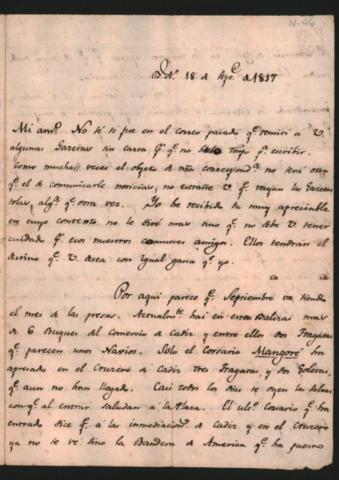 N-46
18 de Sepe. de 1817
Mi amo. No sé si fue en el correo pasado qe. remití a V.
algunas Gazetas sin carta pr. qe. no hubo tmpo. pa. escribir.
Como muchas veces el objeto de nra corresponda. no será otro
qe. el de comunicarle noticias, no extrañe V. qe. vayan las Gazetas
solas, alga. qe. otra vez. Yo he recibido su muy apreciable
en cuyo contexto no le diré mas sino qe. no debe V. tener
cuidado pr. esos nuestros comunes amigos. Ellos tendrán el
destino qe. V. desea con igual gana qe. yo.
Por aqui parece qe. Septiembre va siendo
el mes de las presas. Actualmte. hai en estas Balizas mas
de 6 Buques del Comercio de Cadiz y entre ellos dos Fragatas
qe. parecen unos Navios. Solo el Corsario Mangoré ha
apresado en el Crucero de Cadiz tres Fragatas, y dos Goletas,
qe. aun no han llegado. Casi todos los dias se oyen las salvas
con qe. al entrar saludan a la Plaza. El ulto. Corsario qe. ha
entrado dice qe. a las inmediacions. de Cadiz y en el Crucero
ya no se vé sino la Bandera de America qe. ha puesto